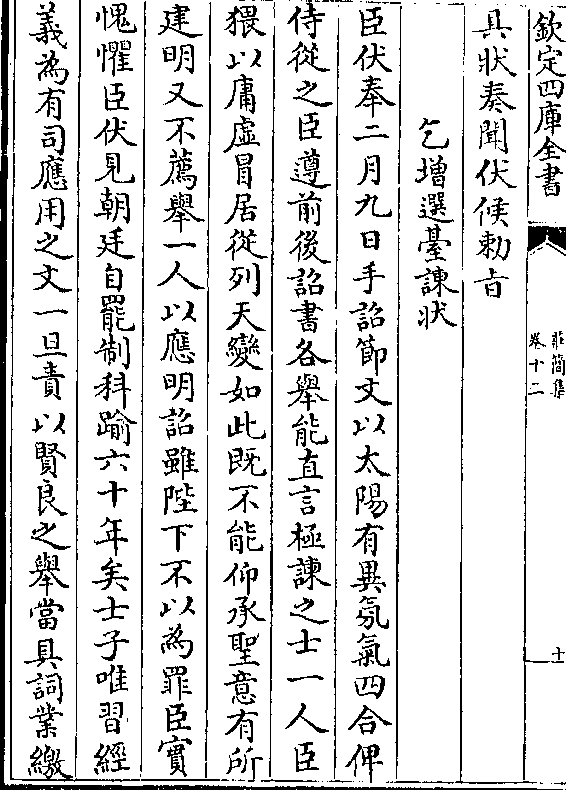 欽定四庫全書
莊簡集
卷十二
十
具狀奏聞伏候勅旨
乞增選臺諫狀
臣伏奉二月九日手詔節文以太陽有異氛氣四合俾
侍從之臣遵前後詔書各舉能直言極諫之士一人臣
猥以庸虛冒居從列天變如此既不能仰承聖意有所
建明又不薦舉一人以應明詔雖陛下不以為罪臣實
愧懼臣伏見朝廷自罷制科踰六十年矣士子唯習經
義為有司應用之文一旦責以賢良之舉當具詞業繳